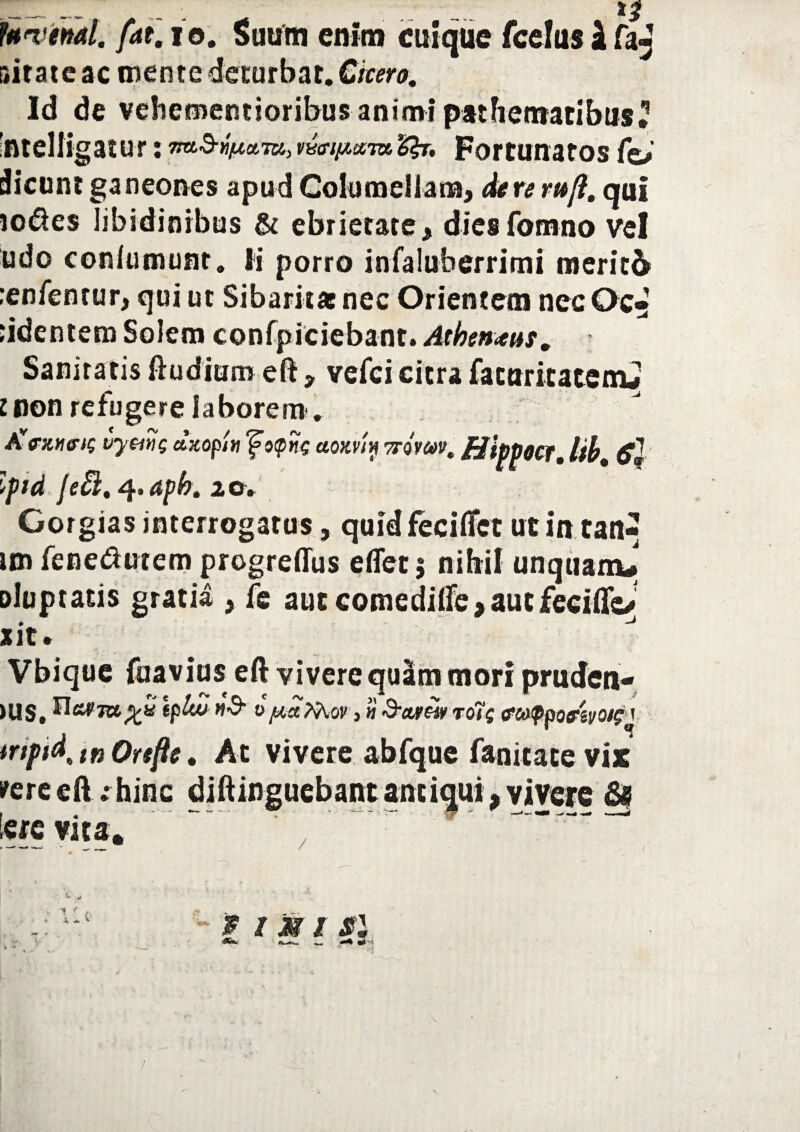 13
Juvenal. sat. 10. Suum enim cuique scelus à sa-
nitate ac mente deturbat. Cicero.
Id de vehementioribus animi pathematibus
intelligatur: παθήματα, νȣσιματα Fortunatos se
dicunt ganeones apud Columellam, de re rust. qui
noctes libidinibus & ebrietate, dies somno vel
udo consumunt. Ii porro insaluberrimi meritò
censentur, qui ut Sibaritæ nec Orientem nec Oc-
cidentem Solem conspiciebant. Athenæus.
Sanitatis studium est, vesci citra saturitatem
non refugere laborem.
Ἄσκησις ὑγείης ἀκορίη τροφῆς ἀοκνίη πόνων. Hippocr. lib. 6
pid sect. 4. aph. 20.
Gorgias interrogatus, quid fecisset ut in tan-
am senectutem progressus esset; nihil unquam
oluptatis gratiâ, se aut comedisse, aut fecisse
xit.
Vbique suavius est vivere quàm mori pruden-
bus. Πανταχȣ ἡδὺ μᾶλλον, ἢ θανεῖν τοῖς
uripid. in Oreste. At vivere absque sanitate vix
vere est: hinc distinguebant antiqui, vivere &
ere vita.
FINIS.